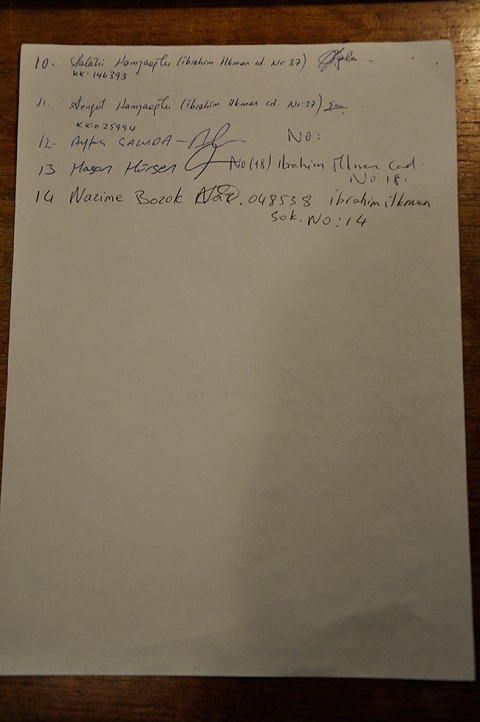 10. Salahi Hamzaoğlu (ibrahim ilkman cd. No:37)
KK:146393
11. Şengül Hamzaoğlu (ibrahim ilkman cd. No:37)
KK:025994
12- No:
13 Hasan Hürsen No(18) ibrahim ilkman cad.
No 18.
14 Nazime Bozok 048538 ibrahim ilkman
Sok. No:14